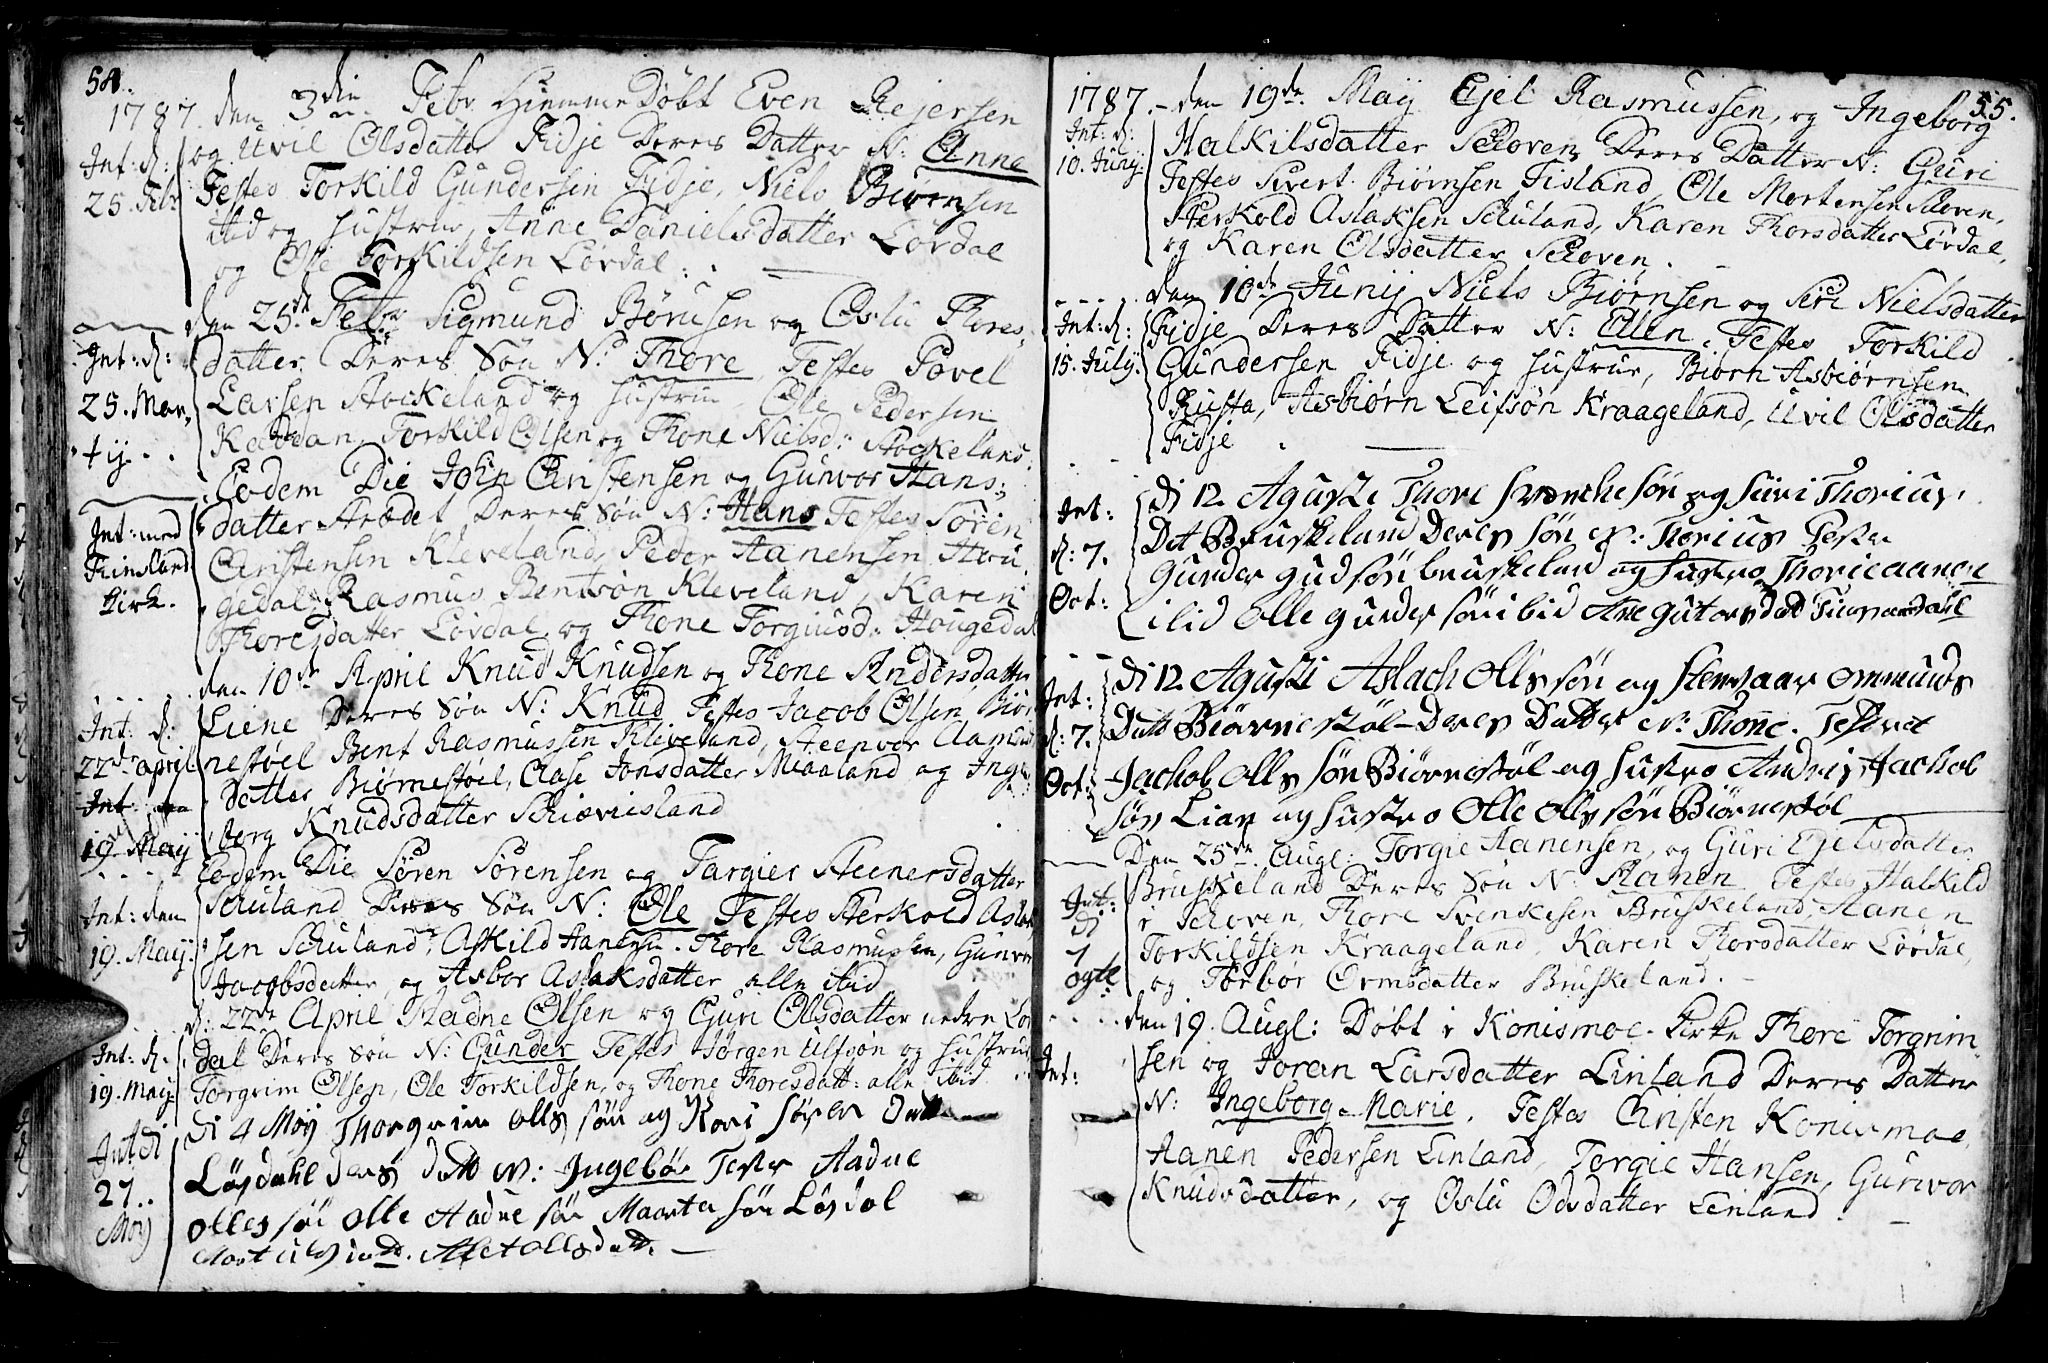 54.
1787. den 3die Febr. Hiemme Døbt Even Rejersen
og Uvil Olsdatter Fidje Deres Datter N: Anne
Testes Torkild Gundersen Fidje, Niels Biørnsen
ibid og Hustrue, Anne Danielsdatter Lövdal
og Ole Torkildsen Lövdal.
Int: d:
25. Febr
den 25de Febr Sigmund Børusen og Oslu Thores
datter Deres Søn N: Thore, Testes Povel
Larsen Stockeland og Hustrue Ole Pedersen
Torkild Olsen og Thone Nielsd: Stockeland.
Int: d:
25. Mar,
tij..
Eodem Die John Christensen og Gunvor Hans
datter Deres Søn N: Hans Testes Sören
Christensen Kleveland, Peder Aanensen Hou
gedal, Rasmus Bentsøn Kleveland, Karen
Thoresdatter Lövdal og Thone Torgiusd: Hougedal
Int: med
Finsland
Kirk.
den 10de April Knud Knudsen og Thone Andersdatter
Liene Deres Søn N: Knud Testes Jacob Olsen Biør
nestøel Bent Rasmussen Kleveland, Steenvor Aamun
Datter Biørnestøel, Aase Jonsdatter Meaaland og Inge
borg Knudsdatter Schiævisland
Int: d:
22de april
Int
19. May
Eodem Die Søren Sørensen og Targier Steenersdatter
Schuland Deres Søn N: Ole Testes Sterkold Aslak
sen Schuland, Askild Aanensen. Thore Rasmussen, Gunvor
Jacobsdatter, og Asbor Aslaksdatter alle ibid
Int: den
19. May.
d: 22de April Aadne Olsen og Guri Olsdatter nedre Löv
dal Deres Søn N: Gunder Testes Jörgen Ulfsøn og Hustrue
Torgrim Olsen, Ole Torkildsen, og Thone Thoresdatt: alle ibid.
Int: d.
19. May
di 4 Moy Thorgrim olls søn ag Kari
Løvdahl Ders datt N: Ingebör Tester Aadne
olles søn olle Aadne søn Maarten søn Løvdal
Alet ollsdatt.
Int di
27..
Moy
55.
1787. den 19de May Ejel Rasmussen, og Ingeborg
Halkilsdatter Schoven Deres Datter N: Guri
Testes Sivert Biørnsen Fisland, Ole Mortensen Schoven,
Sterkold Aslaksen Schuland, Karen Thorsdatter Lövdal,
og Karen Olsdatter Schoven.
Int: d:
10. Junij
den 10de Junij Niels Biørnsen og Siri Nielsdatter
Fidje Deres Datter N: Ellen. Testes Torkild
Gundersen Fidje og Hustrue, Biørn Asbiørnsen
Rusta, Asbiørn Leifsøn Kraageland, Uvil Olsdatter
Fidje
Int: d:
15. July.
di 12. Agusti Thore søn og Siri Thorius,
Dat Bruskeland Deres søn N: Thorius Tester
Gunder Gudsøn bruskeland ag Hustro
ibid Olle Gunder søn ibid
Int:
d: 7.
Oct:
di 12. Agusti Aslach Olls søn ag Stensaar ommunds
Datt Biørnestøl Deres Datter N: Thone. Testes
Jachob Olls søn Biørnestøl ag Hustro Andris Jachob
søn Lian ag Hustro Olle Olls søn Biørnestøl
Int:
d: 7.
Oct:
Den 25de Augl: Torgie Aanensen, og Guri Ejelsdatter
Bruskeland Deres Søn N: Aanen Testes Halkild
i Schoven, Thore Svenkesen Bruskeland, Aanen
Torkildsen Kraageland, Karen Thorsdatter Lövdal,
og Torbor Ormsdatter Bruskeland.
Int:
d
7
den 19. Augl: Døbt i Konismoe Kirke Thore Torgrim
sen og Joran Larsdatter Linland Deres Datter
N: Ingeborg Marie. Testes Christen Konismoe,
Aanen Pedersen Linland, Torgie Hansen, Gunvor
Knudsdatter, og Oslu Odsdatter Linland.
Int: